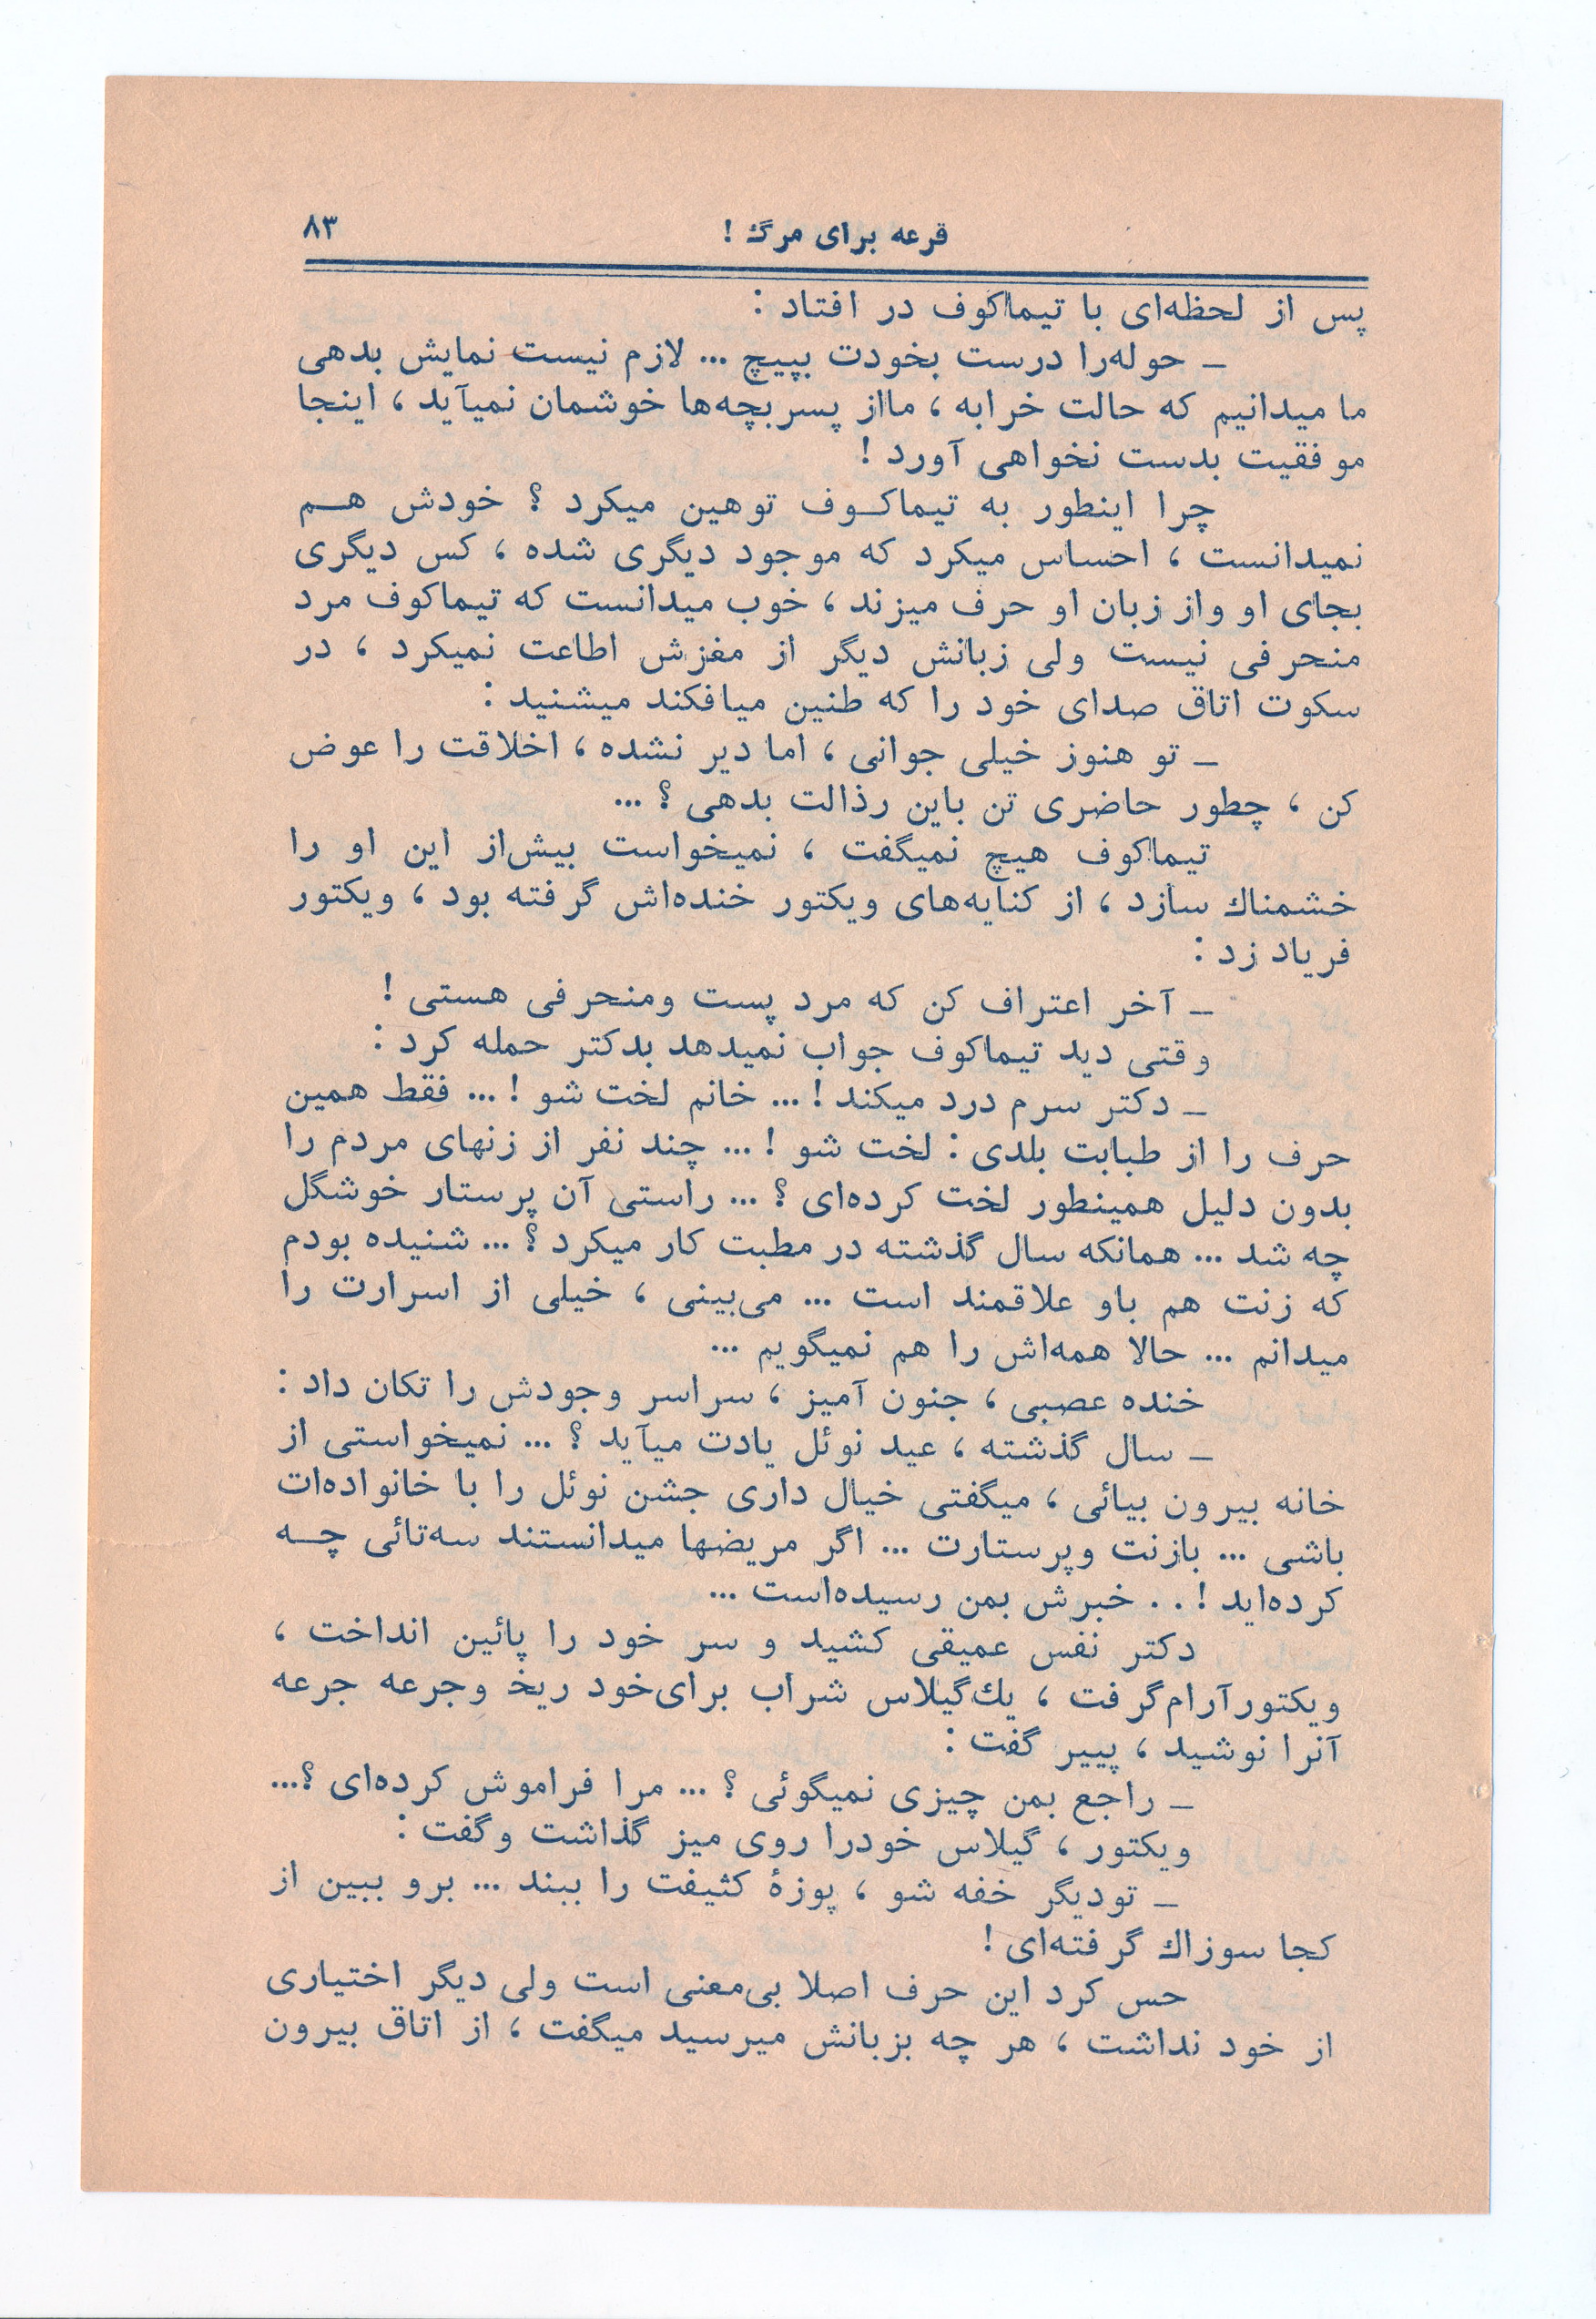 قرعه برای مرگ ! ۸۳
پس از لحظه‌ای با تیماکوف در افتاد :
ـ حوله‌را درست بخودت بپیچ ... لازم نیست نمایش بدهی
ما میدانیم که حالت خرابه ، مااز پسربچه‌ها خوشمان نمیآید ، اینجا
موفقیت بدست نخواهی آورد !
چرا اینطور به تیماکـوف توهین میکرد ؟ خودش هـم
نمیدانست ، احساس میکرد که موجود دیگری شده ، کس دیگری
بجای او واز زبان او حرف میزند ، خوب میدانست که تیماکوف مرد
منحرفی نیست ولی زبانش دیگر از مغزش اطاعت نمیکرد ، در
سکوت اتاق صدای خود را که طنین میافکند میشنید :
ـ تو هنوز خیلی جوانی ، اما دیر نشده ، اخلاقت را عوض
کن ، چطور حاضری تن باین رذالت بدهی ؟ ...
تیماکوف هیچ نمیگفت ، نمیخواست بیش‌از این او را
خشمناك سازد ، از کنایه‌های ویکتور خنده‌اش گرفته بود ، ویکتور
فریاد زد :
ـ آخر اعتراف کن که مرد پست ومنحرفی هستی !
وقتی دید تیماکوف جواب نمیدهد بدکتر حمله کرد :
ـ دکتر سرم درد میکند ! ... خانم لخت شو ! ... فقط همین
حرف را از طبابت بلدی : لخت شو ! ... چند نفر از زنهای مردم را
بدون دلیل همینطور لخت کرده‌ای ؟ ... راستی آن پرستار خوشگل
چه شد ... همانکه سال گذشته در مطبت کار میکرد ؟ ... شنیده بودم
که زنت هم باو علاقمند است ... می‌بینی ، خیلی از اسرارت را
میدانم ... حالا همه‌اش را هم نمیگویم ...
خنده عصبی ، جنون آمیز ، سراسر وجودش را تکان داد :
ـ سال گذشته ، عید نوئل یادت میآید ؟ ... نمیخواستی از
خانه بیرون بیائی ، میگفتی خیال داری جشن نوئل را با خانواده‌ات
باشی ... بازنت وپرستارت ... اگر مریضها میدانستند سه‌تائی چـه
کرده‌اید ! . . خبرش بمن رسیده‌است ...
دکتر نفس عمیقی کشید و سر خود را پائین انداخت ،
ویکتورآرام‌گرفت ، یك‌گیلاس شراب برای‌خود ریخ وجرعه جرعه
آنرا نوشید ، پییر گفت :
ـ راجع بمن چیزی نمیگوئی ؟ ... مرا فراموش کرده‌ای ؟...
ویکتور ، گیلاس خودرا روی میز گذاشت وگفت :
ـ تودیگر خفه شو ، پوزهٔ کثیفت را ببند ... برو ببین از
کجا سوزاك گرفته‌ای !
حس کرد این حرف اصلا بی‌معنی است ولی دیگر اختیاری
از خود نداشت ، هر چه بزبانش میرسید میگفت ، از اتاق بیرون